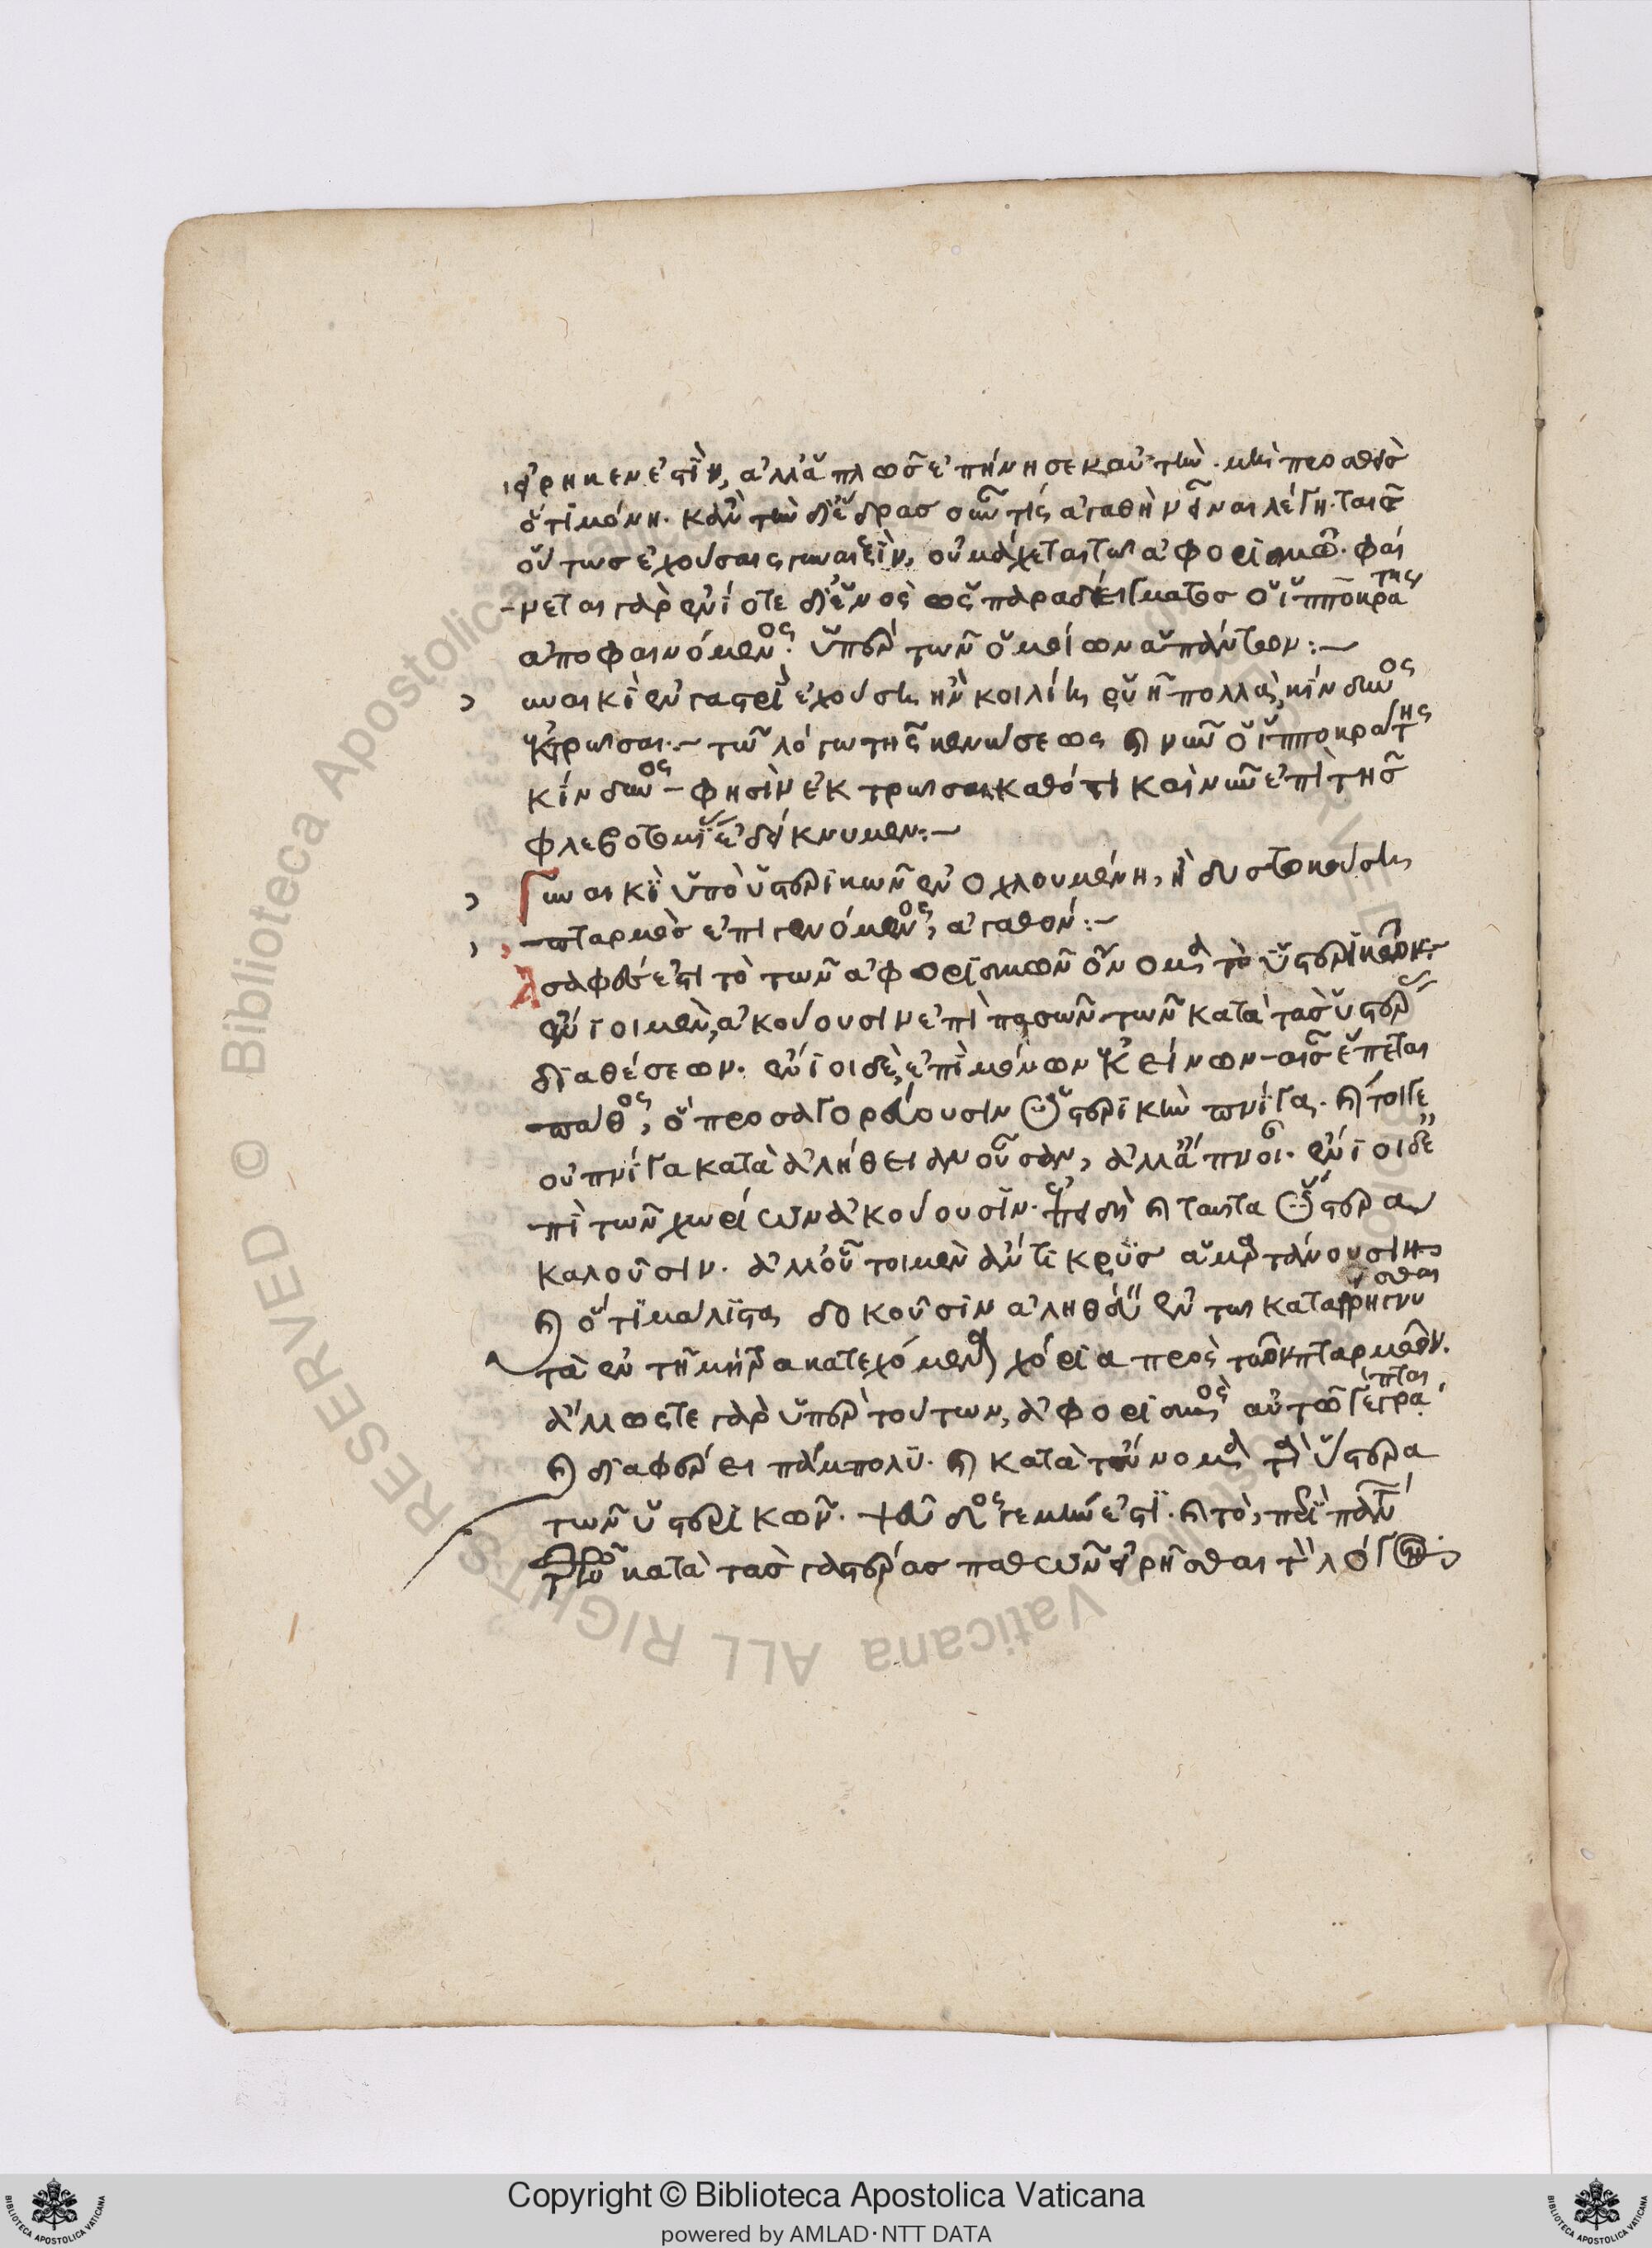 εἴρηκεν ἐστὶν, ἀλλ' ἁπλῶς ἐπήνησε καὶ αὐτὴν. μὴ προσθεὶς
ὅτι μόνη. κἂν τὴν δι' ἕδρας οὖν τίς ἀγαθὴν εἶναι λέγη ταῖς
οὕτως ἐχούσαις γυναιξὶν, οὐ μάχεται τῶ ἀφορισμῶ. φαί
νεται γὰρ ἐνίοτε δι' ἑνὸς ὡς παραδείγματος ὁ ἱπποκράτης
ἀποφαινόμενος ὑπὲρ τῶν ὁμοίων ἁπάντων:~
γυναικὶ ἐν γαστρὶ ἐχούση ἢν κοιλίη ῥυῆ πολλὰ, κίνδυνος
ἐκτρῶσαι:~ τῶ λόγω τῆς κενώσεως καὶ νῦν ὁ ἱπποκράτης
κίνδυνος φησὶν ἐκτρῶσαι, καθότι καὶ νῦν ἐπὶ τῆς
φλεβοτομίας ἐδείκνυμεν:~
Γυναικὶ ὑπὸ ὑστερικῶν ἐνοχλουμένη, ἢ δυστοκούση
πταρμὸς ἐπιγενόμενος, ἀγαθόν:~
Ἀσαφές ἐστι τὸ τῶν ἀφορισμῶν ὄνομα τὸ ὑστερικῶν κ
ἔνιοι μὲν, ἀκούουσιν ἐπὶ πασῶν τῶν κατὰ τὰς ὑστέρας
διαθέσεων. ἔνιοι δὲ, ἐπὶ μόνων ἐκείνων αἷς ἕπεται
πάθος, ὃ προσαγορεύουσιν ὑστερικὴν πνίγα. καίτοιγε
οὐ πνίγα κατὰ ἀλήθειαν οὖσαν, ἀλλ' ἄπνοιαν. ἔνιοι δὲ
ἐπὶ τῶν χωρίων ἀκούουσιν. ἐπειδὴ καὶ ταῦτα ὕστερα
καλοῦσιν. ἀλλ' οὗτοι μὲν ἄντικρυς ἁμαρτάνουσιν
καὶ ὅτι μάλιστα δοκοῦσιν ἀληθεύειν τῶ καταρρήγνυσθαι
τὰ ἐν τῆ μήτρα κατεχόμενα χόρια πρὸς τῶν πταρμῶν.
ἄλλως τε γὰρ ὑπὲρ τούτων, ἀφορισμὸς αὐτῶ γέγραπται
καὶ διαφέρει πάμπολυ. καὶ κατὰ τοὔνομα τὰ ὕστερα
τῶν ὑστερικῶν. ψευδὸς γε μήν ἐστι. καὶ τὸ, περὶ πάντων
τῶν κατὰ τὰς γαστέρας παθῶν εἰρῆσθαι τὸν λόγον